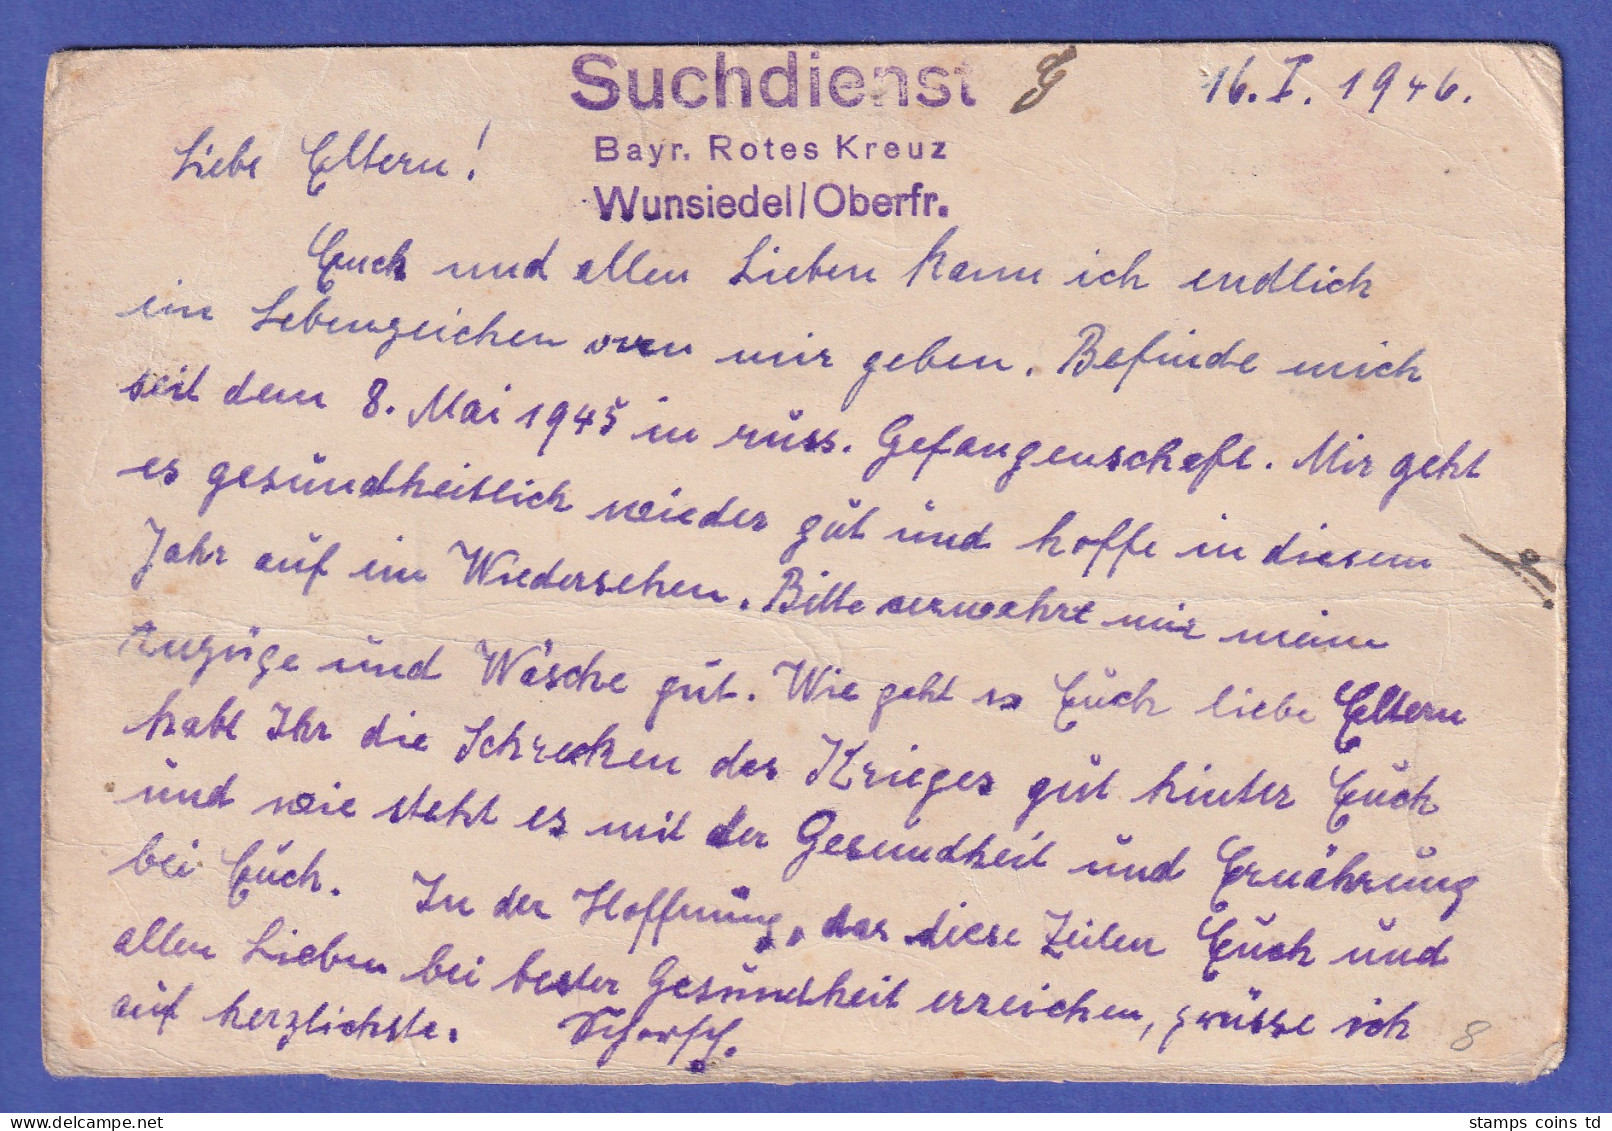 Suchdienst
16. I. 1946.
Bayr. Rotes Kreuz
Wunsiedel/Oberfr.
Liebe Eltern!
Euch und allen Lieben kann ich endlich
ein Lebenzeichen von mir geben. Befinde mich
seit dem 8. Mai 1945 in russ. Gefangenschaft. Mir geht
es gesundheitlich wieder gut und hoffe in diesem
Jahr auf ein Wiedersehen. Bitte verwahrt mir meine
Anzüge und Wäsche gut. Wie geht es Euch liebe Eltern
habt Ihr die Schrecken des Krieges gut hinter Euch
und wie steht es mit der Gesundheit und Ernährung
bei Euch. In der Hoffnung, das diese Zeilen Euch und
allen Lieben bei bester Gesundheit erreichen, grüsse ich
auf herzlichste. Schorsch.
8
stamps coins td